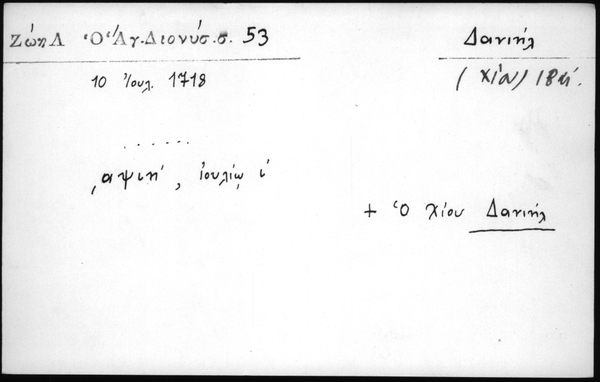 Ζώη Λ Ὁ Ἅγ. Διονύσ. σ. 53
Δανιήλ
10 Ἰουλ. 1718
(Χίου)
. . . . . .
͵αψιη΄, ἰουλίῳ ι΄
+ Ὁ Χίου Δανιήλ